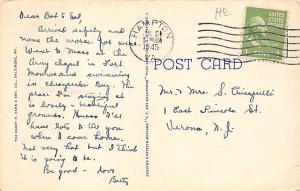 Dear Bob & Sal,
Arrived safely and
none the worse for wear.
Went to Mass at the
Army chapel in Fort
Monroe and swimming
in Chesapeake Bay. The
place I'm staying at
is lovely - beautiful
grounds. Guess I'll
have lots to tell you
when I come home.
Not very hot but I think
it is going to be.
Be good - love
Betty
HE
HAMPTON
1945
VA.
POST CARD
Mr. & Mrs. S.
1 East Lincoln St.
Verona, N.J.